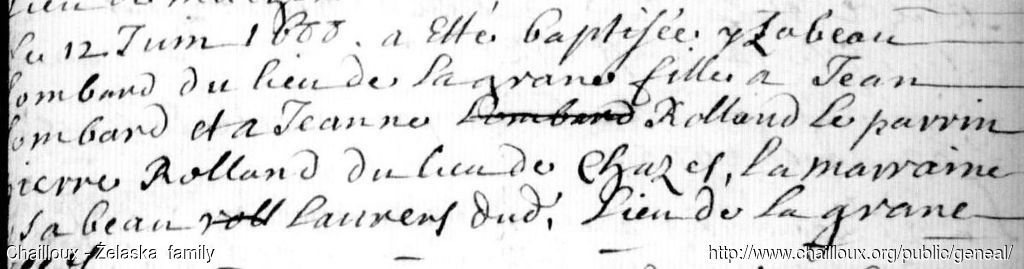 le 12 Juin 1600. a Esté baptisée yzabeau
lombard du lieu de la grane fille a Jean
lombard et a Jeanne lombard Rolland le parrin
pierre Rolland du lieu de Chazes, la marraine
ysabeau roll laurens dud. lieu de la grane
Chailloux - Żelaska family
http://www.chailloux.org/public/geneal/